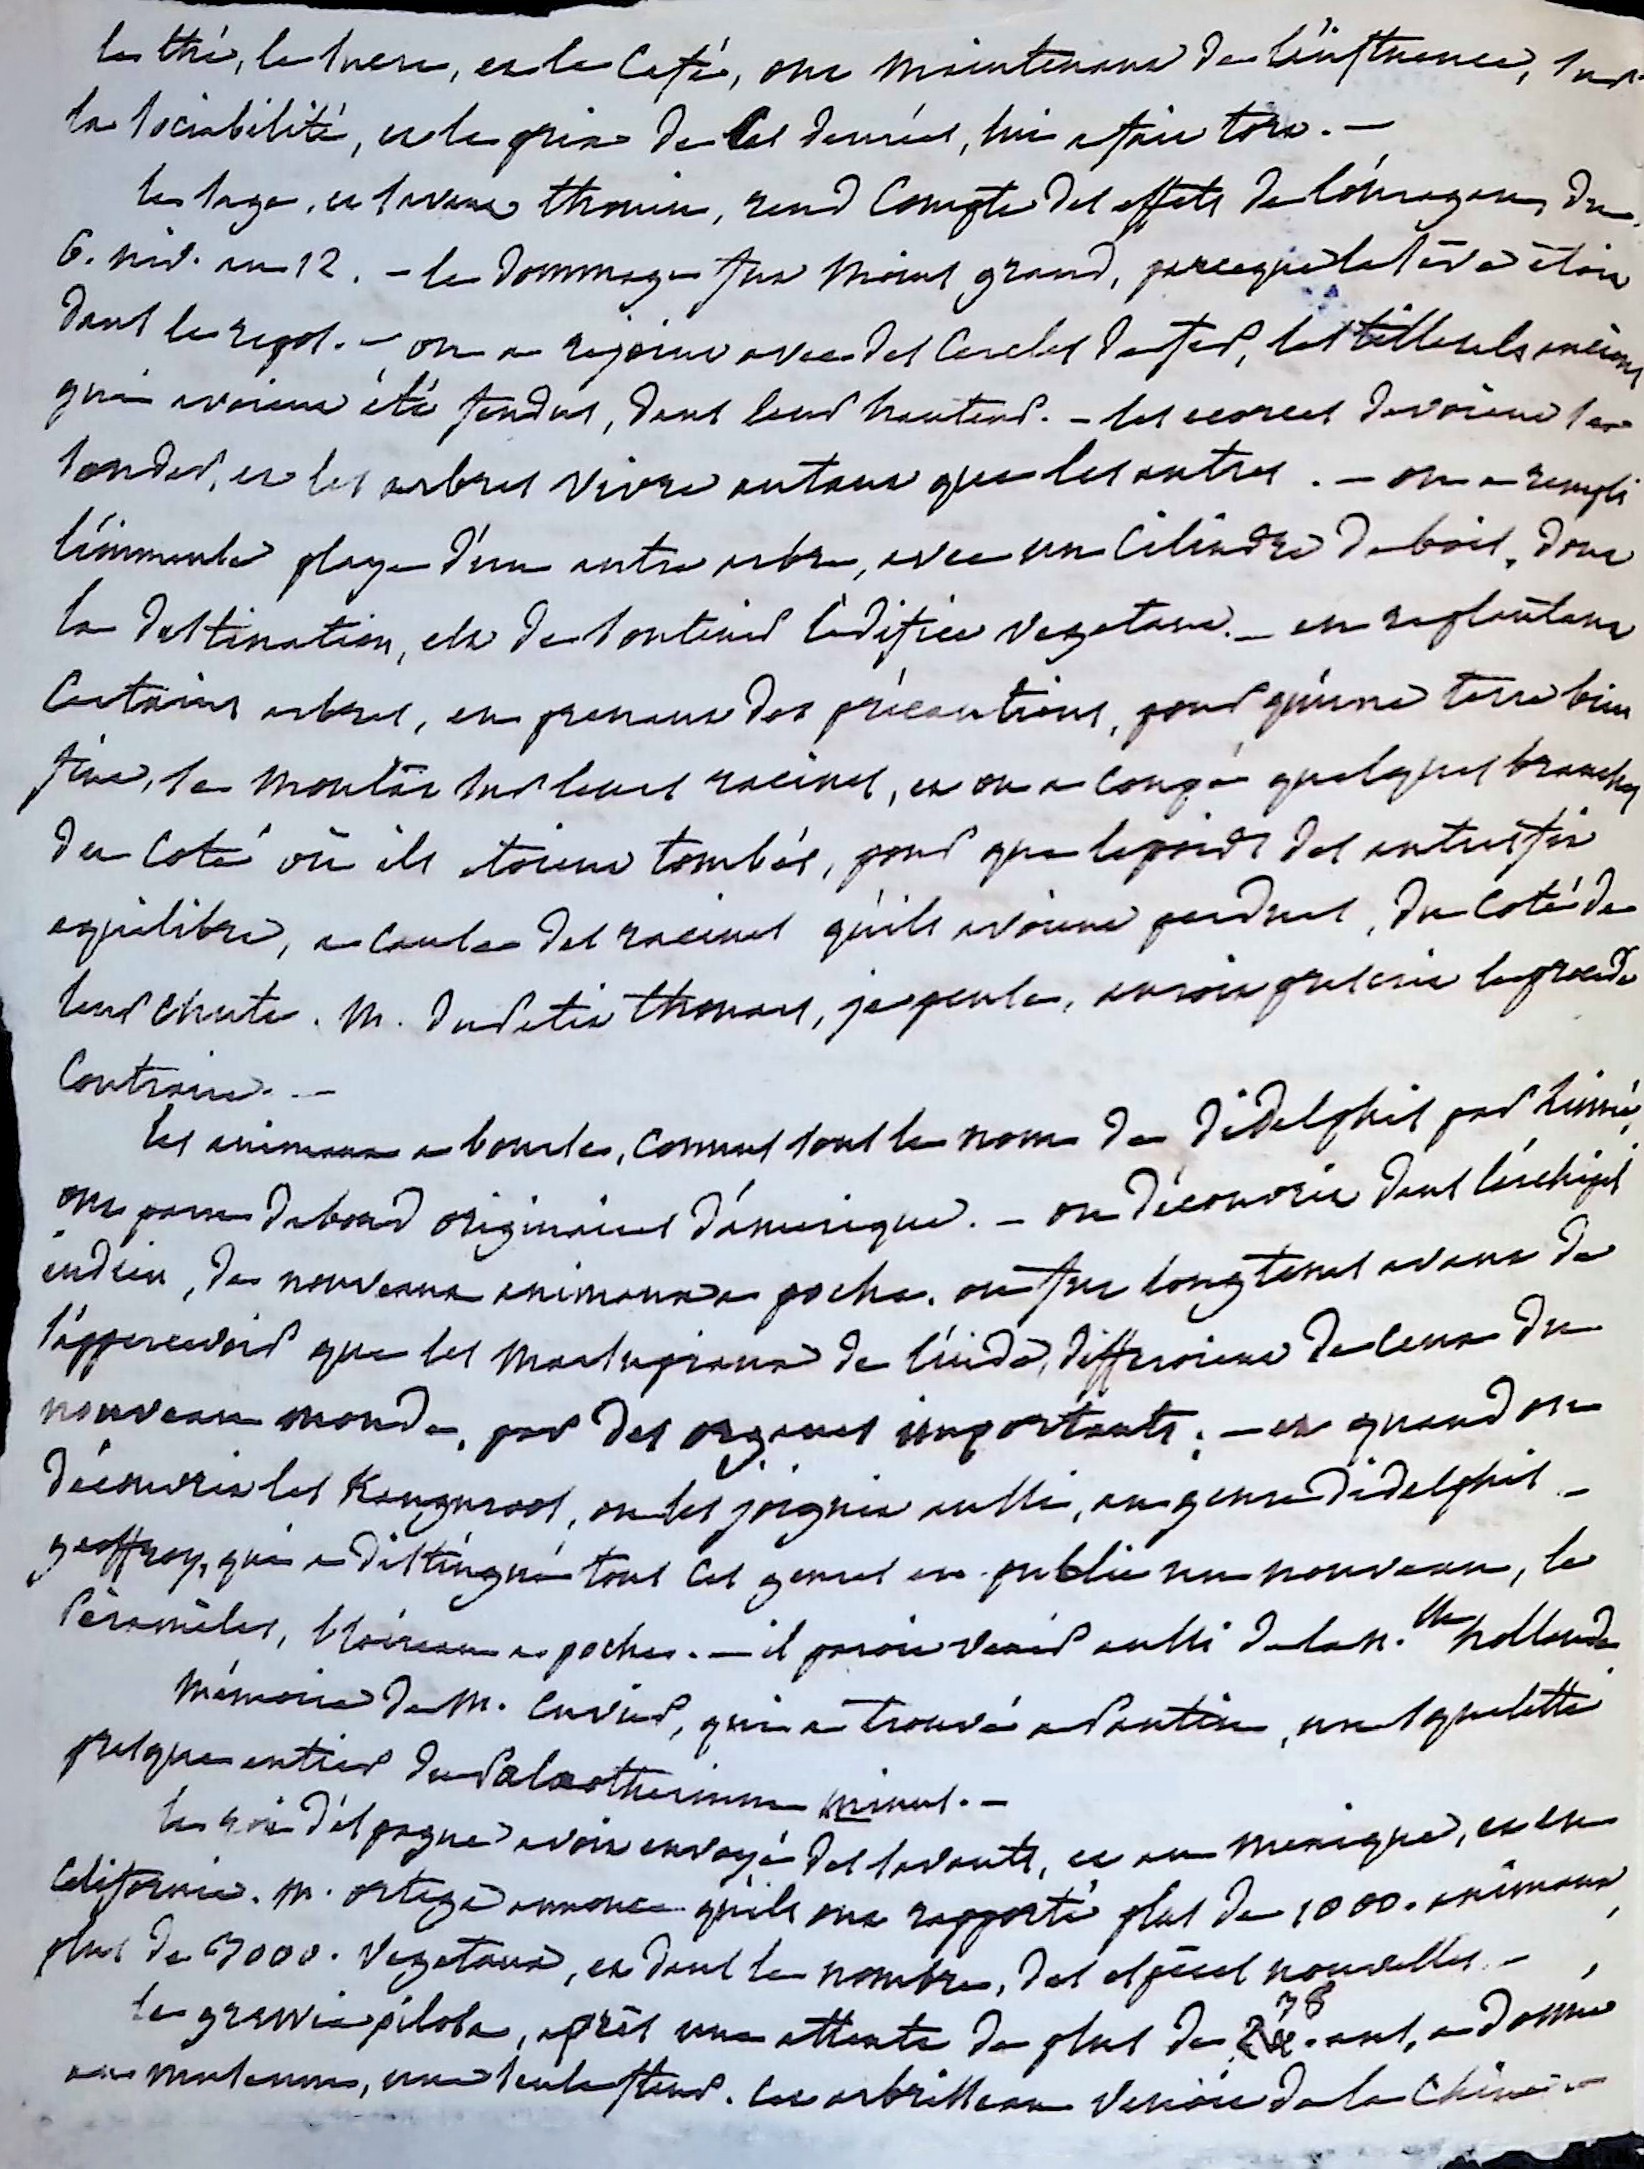 le thé, le sucre, et le Café, ont maintenant de l'influence, sur
la sociabilité, et le prix de ces denrées, lui a fait tort. —
le sage, et savant thouin, rend Compte des effets de l'ouragan, du
6. niv. an 12. — le dommage fut moins grand, parceque la sève étoit
dans le repos. — on a rejoint avec des Cercles de fer, les tilleuls anciens
qui avoient été fendus, dans leur hauteur. — les ecorces devoient se
souder, et les arbres vivre autant que les autres. — on a rempli
l'immense playe d'un autre arbre, avec un Cilindre de bois, dont
la destination, est de soutenir l'édifice vegetant. — en replantant
Certains arbres, en prenant des précautions, pour qu'une terre bien
fine, se moulât sur leurs racines, et on a coupé quelques branches
du Coté où ils etoient tombés, pour que le poids des autres fit
equilibre, a cause des racines qu'ils avoient perdues, du Coté de
leur chute. M. du petit thouars, je pense, auroit préféré le procédé
Contraire. —
les animaux a bourse, connus sous le nom de didelphis par Linné,
ont paru d'abord originaires d'amerique. — on découvrit dans l'archipel
indien, de nouveaux animaux a poche. on fut longtems avant de
s'appercevoir que les marsupiaux de l'inde, differoient de ceux du
nouveau monde, par des organes importants; — et quand on
découvrit les Kanguroos, on les joignit aussi, au genre didelphis —
geoffroy, qui a distingué tous ces genres en publie un nouveau, le
Péramèles, blaireau a poches. — il paroit venir aussi de la n.lle hollande
Mémoire de M. Cuvier, qui a trouvé a Pantin, un squelette
presque entier du Palæotherium minus. —
le roi d'espagne avoit envoyé des savants, et au mexique, et en
Californie. M. ortega annonce qu'ils ont rapporté plus de 1000. animaux,
plus de 7000. vegetaux, et dans le nombre, des espèces nouvelles. —
le grewia piloba, après une attente de plus de 78. ans, a donné
au museum, une seule fleur. Cet arbrisseau venoit de la Chine —